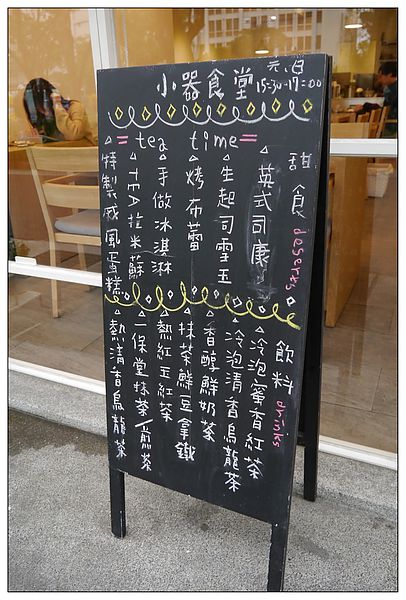 小器食堂
六、日
15:30-17:00
=tea time=
甜食 deserts
△英式司康
△生起司雪玉
△烤布蕾
△手做冰淇淋
△TEA拉米蘇
△特製戚風蛋糕
飲料 drinks
△冷泡蜜香紅茶
△冷泡清香烏龍茶
△香醇鮮奶茶
△抹茶鮮豆拿鐵
△熱紅玉紅茶
△一保堂抹茶/煎茶
△熱清香烏龍茶